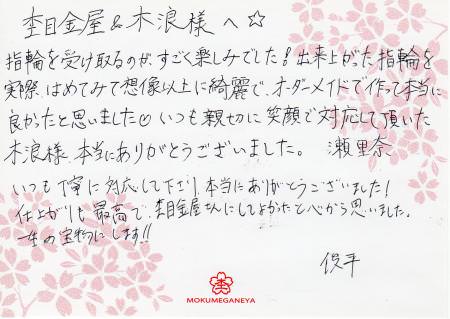 杢目金屋&木浪様へ☆
指輪を受け取るのが、すごく楽しみでした!出来上がった指輪を
実際、はめてみて想像以上に綺麗で、オーダーメイドで作って本当に
良かったと思いました☺いつも親切に笑顔で対応して頂いた
木浪様、本当にありがとうございました。 瀬里奈
いつも丁寧に対応して下さり、本当にありがとうございました!
仕上がりも最高で、杢目金屋さんにしてよかったと心から思いました。
一生の宝物にします!!
俊平
杢
MOKUMEGANEYA